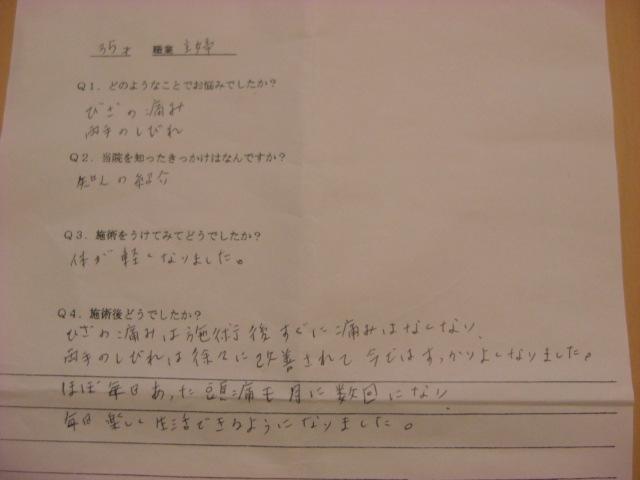 35才 職業 主婦
Q1. どのようなことでお悩みでしたか?
ひざの痛み
両手のしびれ
Q2. 当院を知ったきっかけはなんですか?
知人の紹介
Q3. 施術をうけてみてどうでしたか?
体が軽くなりました。
Q4. 施術後どうでしたか?
ひざの痛みは施術後すぐに痛みはなくなり、
両手のしびれは徐々に改善されて今ではすっかりよくなりました。
ほぼ毎日あった頭痛も月に数回になり、
毎日楽しく生活できるようになりました。